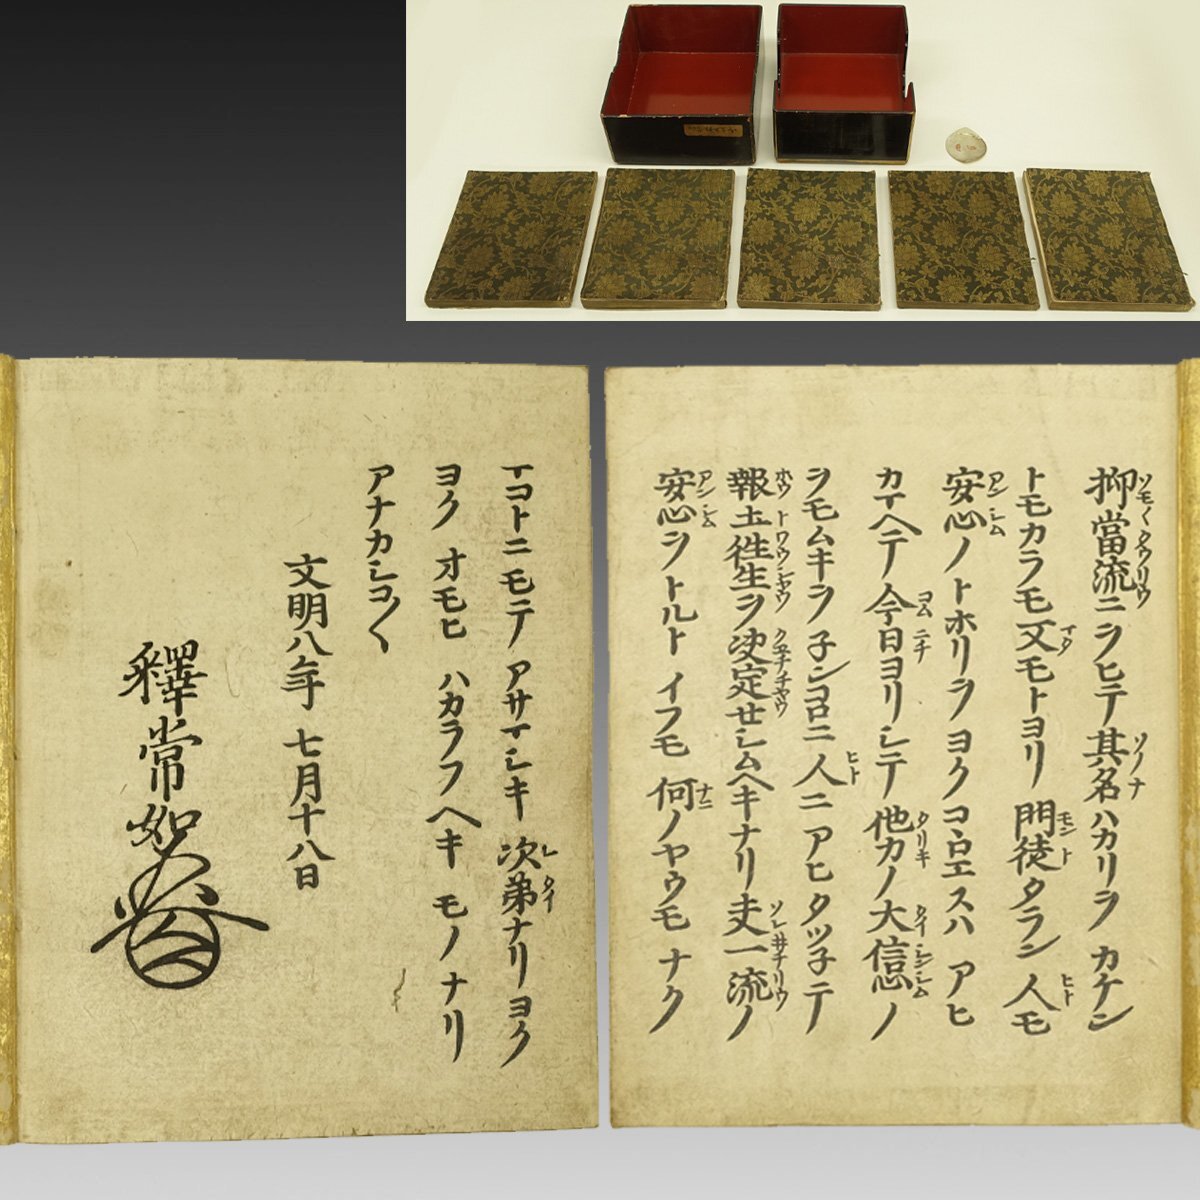 抑當流ニヲヒテ其名ハカリヲカケン
トモカラモ又モトヨリ門徒タラン人モ
安心ノトホリヲヨクコヽロエスハアヒ
カマヘテ今日ヨリシテ他力ノ大信心ノ
ヲモムキヲ子ンコロニ人ニアヒタツ子テ
報土往生ヲ决定セシムヘキナリ夫一流ノ
安心ヲトルトイフモ何ノヤウモナク
マコトニモテアサマシキ次第ナリヨク
ヨクオモヒハカラフヘキモノナリ
アナカシコ〱
文明八年七月十八日
釋常如